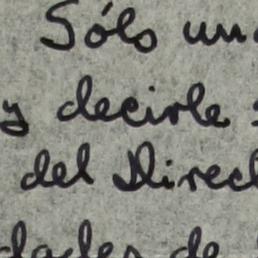 Sólo una
y decirle
del Direc
dades de